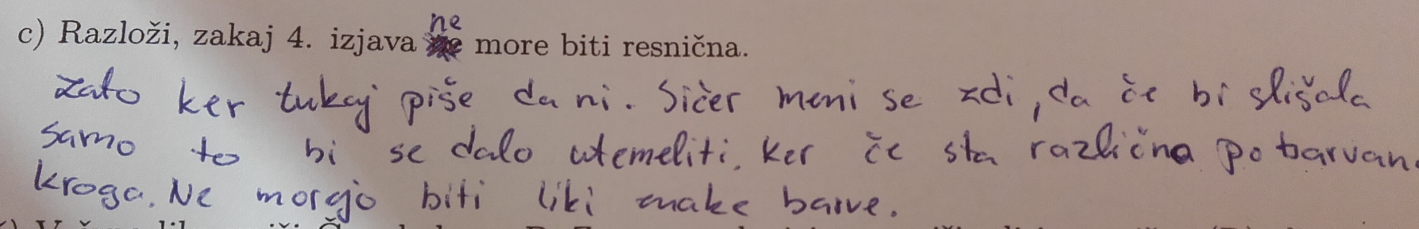 c) Razloži, zakaj 4. izjava ne more biti resnična.
zato ker tukaj piše da ni. Sicer meni se zdi, da če bi slišala
samo to bi se dalo utemeliti. Ker če sta različno pobarvan
kroga. Ne morejo biti liki enake barve.